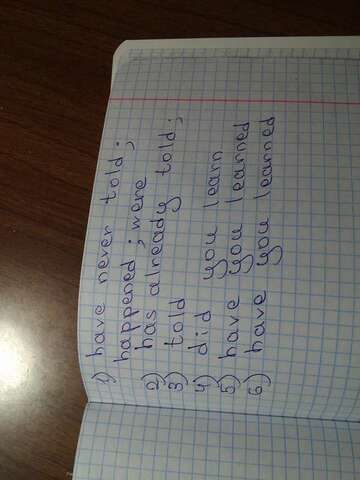 1) have never told;
happened; were
2) has already told;
3) told
4) did you learn
5) have you learned
6) have you learned